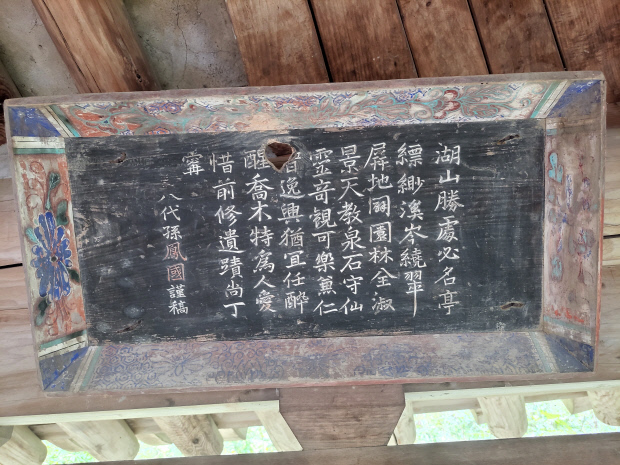 湖山勝處必名亭
縹緲溪岑繞翠
屛地園林全淑
景天教泉石守仙
靈奇觀可樂兼仁
逸興猶宜任醉
醒喬木特爲人愛
惜前修遺蹟尚丁
寗
八代孫鳳國謹稿